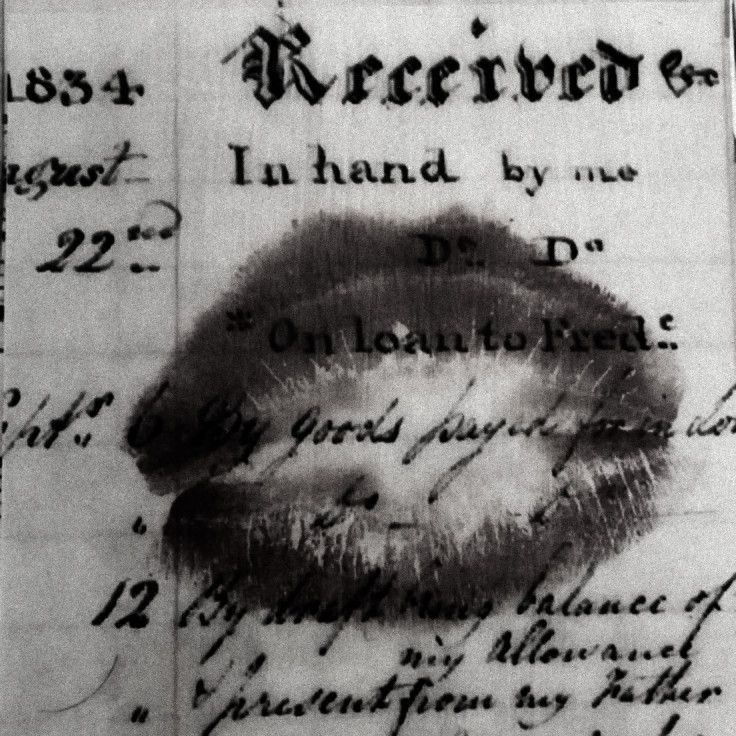 1834 Received &c
August In hand by me
22nd Do. Do
" On loan to Fredc.
Sept.r 6 By goods payed for in
" do
12 By draft being balance of
my allowance
" present from my Father